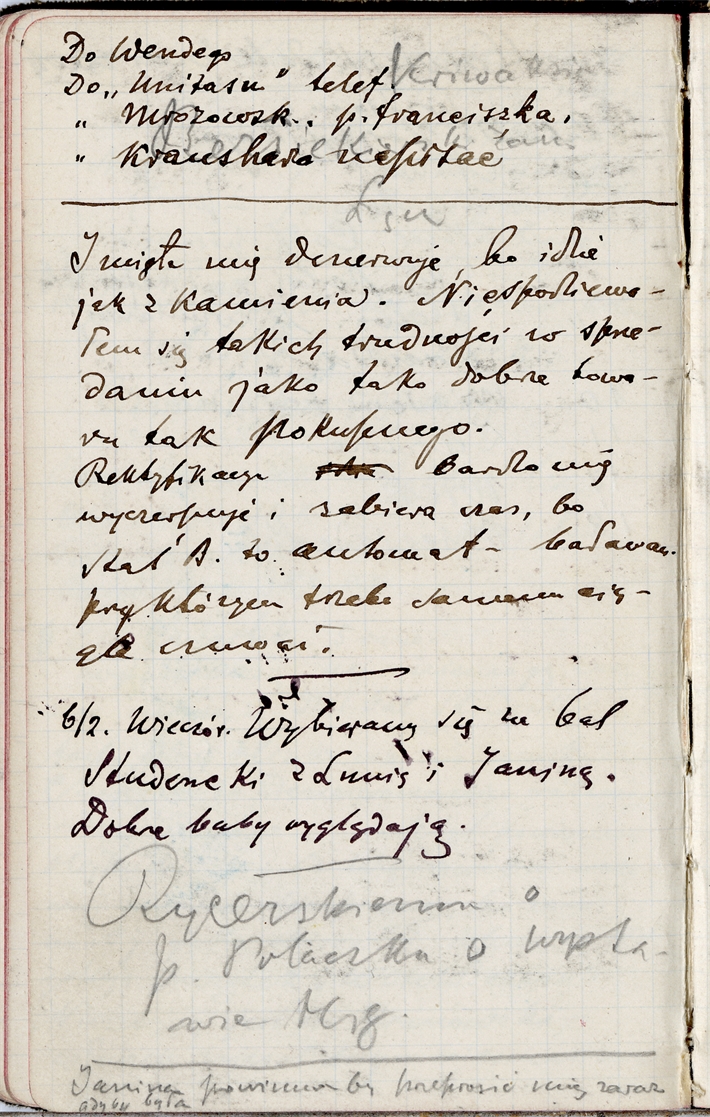 Do Wendego
Do „Unitasu" telef.
„ Mrozowsk. p. Franciszka.
„ Kraushara napisać
Imigła mię denerwuje, bo idzie
jak z kamienia. Niespodziewa-
łem się takich trudności w sprze-
daniu jako tako dobrze towa-
ru tak pokupnego.
Rektyfikacya bardzo mię
wyczerpuje i zabiera czas, bo
Staś B. to automat - bałwan
przy którym trzeba samemu cią-
gle czuwać.
6/2. Wieczór. Wybieramy się na bal
Studencki z Lunią i Janiną.
Dobre baby wyglądają.
Rycerskiemu o
p. Polaczku o wysta-
wie
Janina powinna by przeprosić mię zaraz
gdyby była